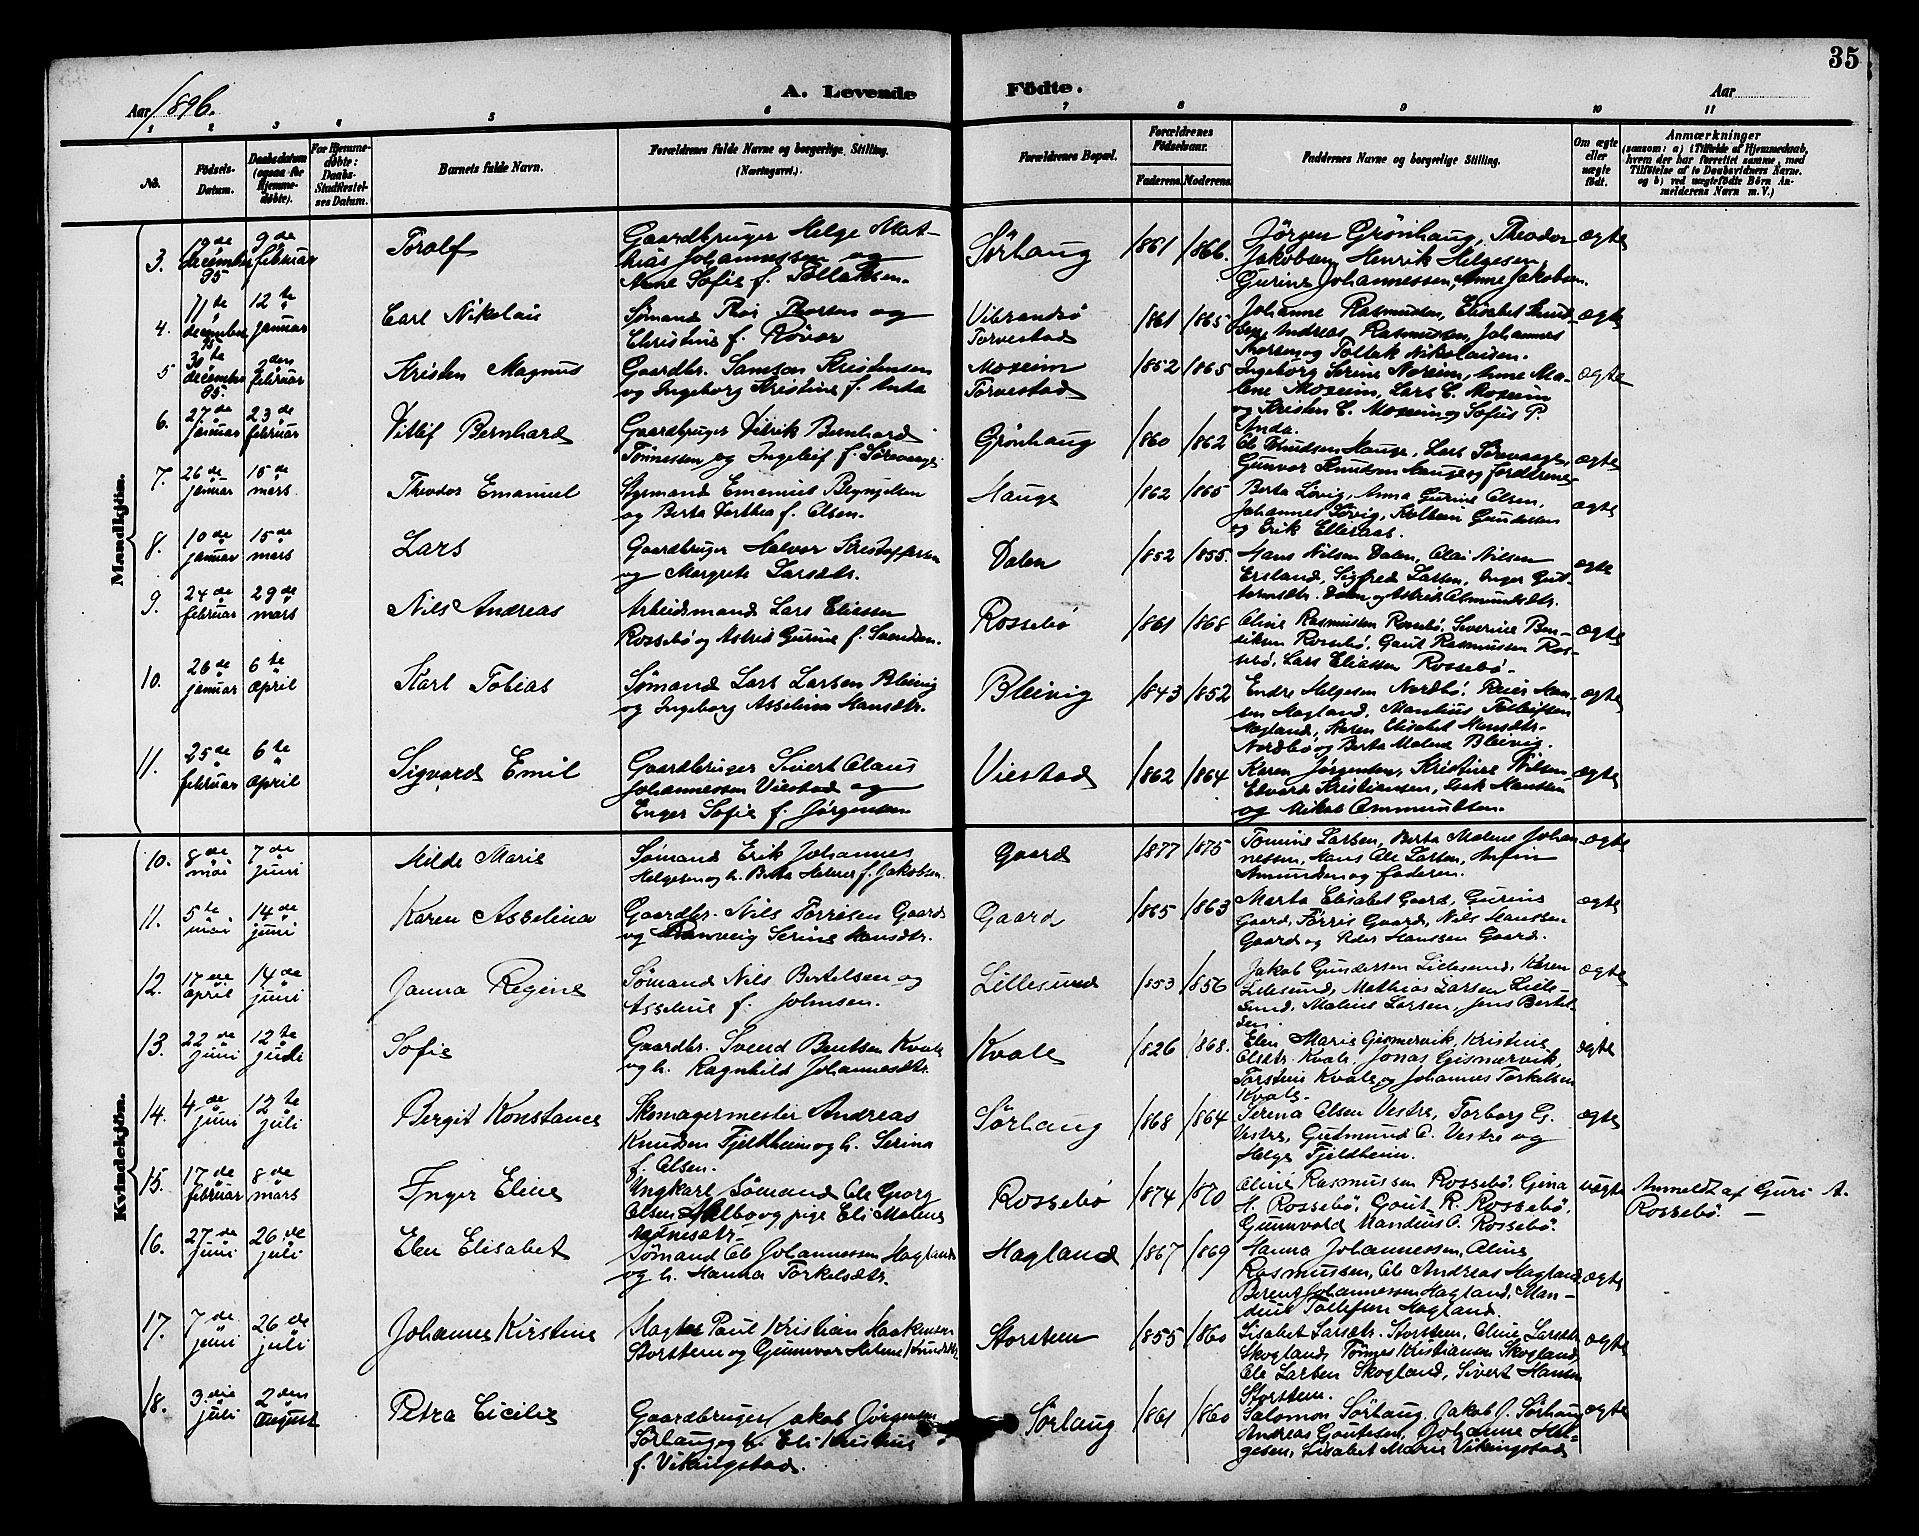 35
Aar 1896.
A. Levende Födte.
Aar
1 2 3 4 5 6 7 8 9 10 11
No.
Födsels-Datum.
Daabsdatum (ogsaa for Hjemme-döbte).
For Hjemme-döbte: Daabs-Stadfæstel-ses Datum.
Barnets fulde Navn.
Forældrenes fulde Navne og borgerlige Stilling. (Næringsvei.)
Forældrenes Bopæl.
Forældrenes Födselsaar.
Faderens. Moderens.
Faddernes Navne og borgerlige Stilling.
Om ægte eller uægte födt.
Anmærkninger
(saasom: a) i Tilfælde af Hjemmedaab, hvem der har forrettet samme, med Tilföielse af to Daabsvidners Navne, og b) ved uægtefödte Börn Anmelderens Navn m. V.)
Mandkjön.
3. 19de december 95 9de februar Toralf
Gaardbruger Helge Mat-
hias Johannessen og
Anne Sofie f. Tollaksen.
Sørhaug 1861 1866.
Jørgen Grønhaug, Theodor
Jakobsen, Henrik Helgesen,
Gurine Johannessen, Anne Jakobsen.
ægte
4. 11te december 95 12te januar Carl Nikolai
Sømand Roi Thorsen og
Christine f. Røvær
Vibrandsø
Torvestad
1861 1865
Johanne Rasmussen, Elisabet
Andreas Rasmussen, Johannes
Thorsen og Tollak Nikolaisen.
ægte
5 december 95. februar Kristen Magnus
Gaardbr. Samson Kristensen
og Ingeborg Kristine f. Anda
Moxeim
Torvestad
1852 1865
Ingeborg Serine Noreim, Anne Ma-
lene Moxeim, Lars C. Moxeim
og Kristen C. Moxeim og Sofus P.
Anda.
ægte
6. 27de januar 23de februar Ditlef Bernhard
Gaardbruger Didrik Bernhard
Tönnessen og Ingeleif f. Sørevaage
Grönhaug 1860 1862
Ole Knudsen Hauge, Lars Sørevaage,
Gunvor Knudsen Hauge og forældrene
ægte
7. 26de januar 15de mars Theodor Emanuel
Styrmand Emanius Bryngelsen
og Berta Dorthea f. Olsen.
Hauge 1862 1865
Berta Lövig, Anna Gurine Olsen,
Johannes Lövig, Kolbein Gundersen
og Erik Elleraas.
ægte
8. 10de januar 15de mars Lars
Gaardbruger Halvor Kristoffersen
og Margrete Larsdtr.
Dalen 1852 1855.
Hans Nilsen Dalen, Olai Nilsen
Ersland, Sigfred Larsen, Inger Gut-
tormsdtr. Dalen og Astrid Asmundsdtr.
ægte
9. 24de februar 29de mars Nils Andreas
Arbeidsmand Lars Eliassen
Rossebø og Astrid Gurine f. Svendsen.
Rossebø 1861 1868
Oline Rasmussen Rossebø, Severine Ben-
diksen Rossebø, Gaut Rasmussen Ros-
sebø, Lars Eliassen Rossebø.
ægte
10. 26de januar 6te april Karl Tobias
Sømand Lars Larsen Bleivig
og Ingeborg Asseline Hansdtr.
Bleivig 1843 1852
Endre Helgesen Nordbø, Reier Han-
sen Hagland, Mandius Tollefsen
Hagland, Karen Elisabet Hansdtr.
Nordbø og Berta Malene Bleivig.
ægte
11. 25de februar 6te april Sigvard Emil
Gaardbruger Sivert Olaus
Johannessen Viestad og
Enger Sofie f. Jørgensen
Viestad 1862 1864
Karen Jørgensen, Kristine Nilsen
Edvard Kristiansen, Isak Hanssen
og Mikal Ommundsen.
ægte
Kvindekjön.
10. 8de mai 7de juni Milde Marie
Sømand Erik Johannes
Helgesen og h. Berta Helene f. Jakobsen.
Gaard 1877 1875
Tomine Larsen, Berta Malene Johan
nessen, Hans Ole Larsen, Arfin
Amundsen og faderen.
ægte
11. 5te mai 14de juni Karen Asselina
Gaardbr. Nils Torrisen Gaard
og Ranveig Serine Hansdtr.
Gaard 1865 1863
Marta Elisabet Gaard, Gurine
Gaard, Tørris Gaard, Nils Hanssen
Gaard og Peder Hanssen Gaard.
ægte
12. 17de april 14de juni Janna Regine
Sømand Nils Bertelsen og
Asseline f. Johnsen.
Lillesund 1853 1856
Jakob Gundersen Lillesund, Karen
Lillesund, Mathias Larsen Lille-
sund, Malene Larsen, Jens Bertel-
sen.
ægte
13. 22de juni 12te juli Sofie
Gaardbr. Svend Bentsen Kvale
og h. Ragnhild Johannesdtr.
Kvale 1826 1868.
Elen Marie Gismervik, Kristine
Olsdtr. Kvale, Jonas Gismervik,
Torstein Kvale og Johannes Torkelsen
Kvale.
ægte
14. 4de juni 12te juli Bergit Konstance
Skomagermester Andreas
Knudsen Fjeldheim og h. Serina
f. Olsen.
Sørhaug 1868 1864
Serena Olsen Vestre, Torborg G.
Vestre, Gudmund O. Vestre og
Helge Fjeldheim.
ægte
15. 17de februar 8de mars Inger Eline
Ungkarl Sømand Ole Georg
Olsen og pige Eli Malene
Rossebø 1874 1870
Oline Rasmussen Rossebø, Gina
H. Rossebø, Gaut R. Rossebø,
Gunvald Mandius O. Rossebø.
uægte
Anmeldt af Guri A.
Rossebø. —
16. 27de juni 26de juli Elen Elisabet
Sømand Ole Johannessen Hagland
og h. Hanna Torkelsdtr.
Hagland 1867 1869
Hanna Johannessen, Oline
Rasmussen, Ole Andreas Hagland,
Berent Johannessen Hagland, Man-
dius Tollefsen Hagland.
ægte
17. 7de juni 26de juli Johanne Kirstine
Paul Kristian Haakonsen
Storsteen og Gunnvor Helene Knudsdtr.
Storsteen 1855 1860
Lisabet Larsdtr. Storsteen, Oline Larsdtr
Skogland, Tönnes Kristiansen Skogland,
Ole Larsen Skogland, Sivert Hansen
Storsteen.
ægte
18. 3die juli 2den august Petra Cicilie
Gaardbruger Jakob Jørgensen
Sørhaug og h. Eli Kristine
f. Vikingstad.
Sørhaug 1861 1860
Salomon Sørhaug, Jakob J. Sørhaug
Andreas Gautesen, Johanne Hel-
gesen, Lisabet Marie Vikingstad
ægte